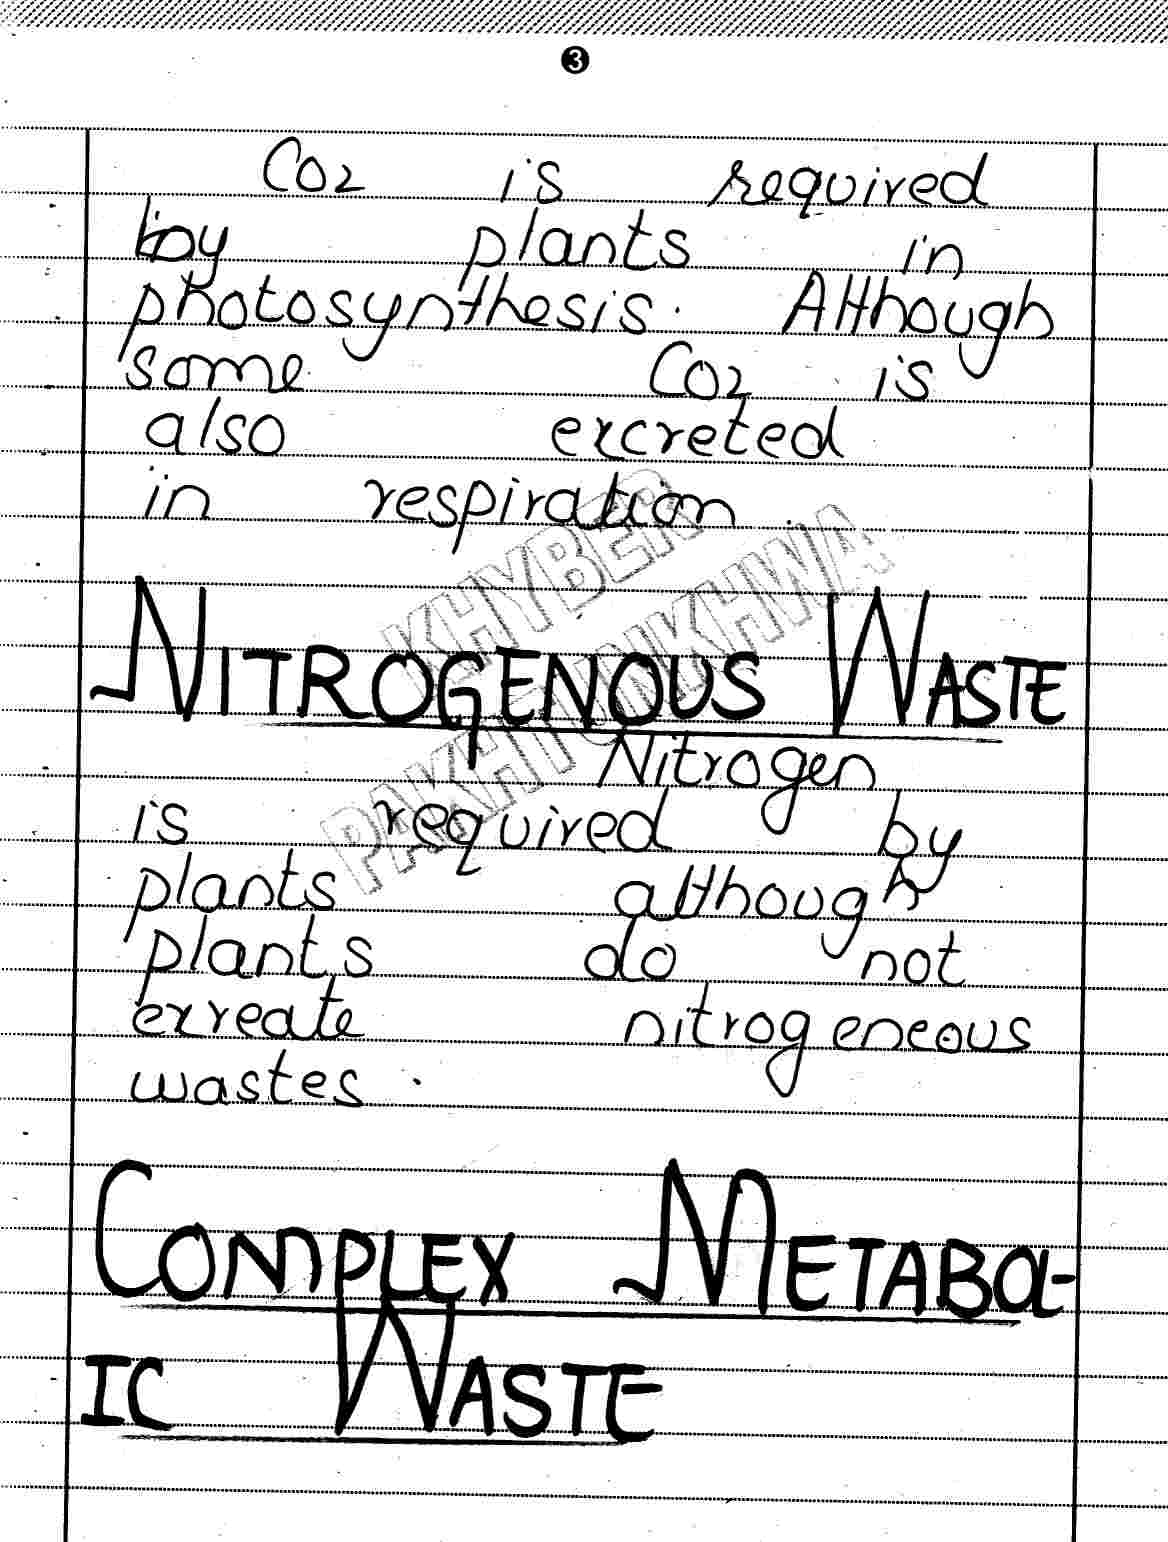 3
CO2 is required
by plants in
photosynthesis. Although
some CO2 is
also excreted
in respiration.
NITROGENOUS WASTE
Nitrogen
is required by
plants although
plants do not
exreate nitrogeneous
wastes.
COMPLEX METABOL-
IC WASTE
KHYBER
PAKHTUNKHWA